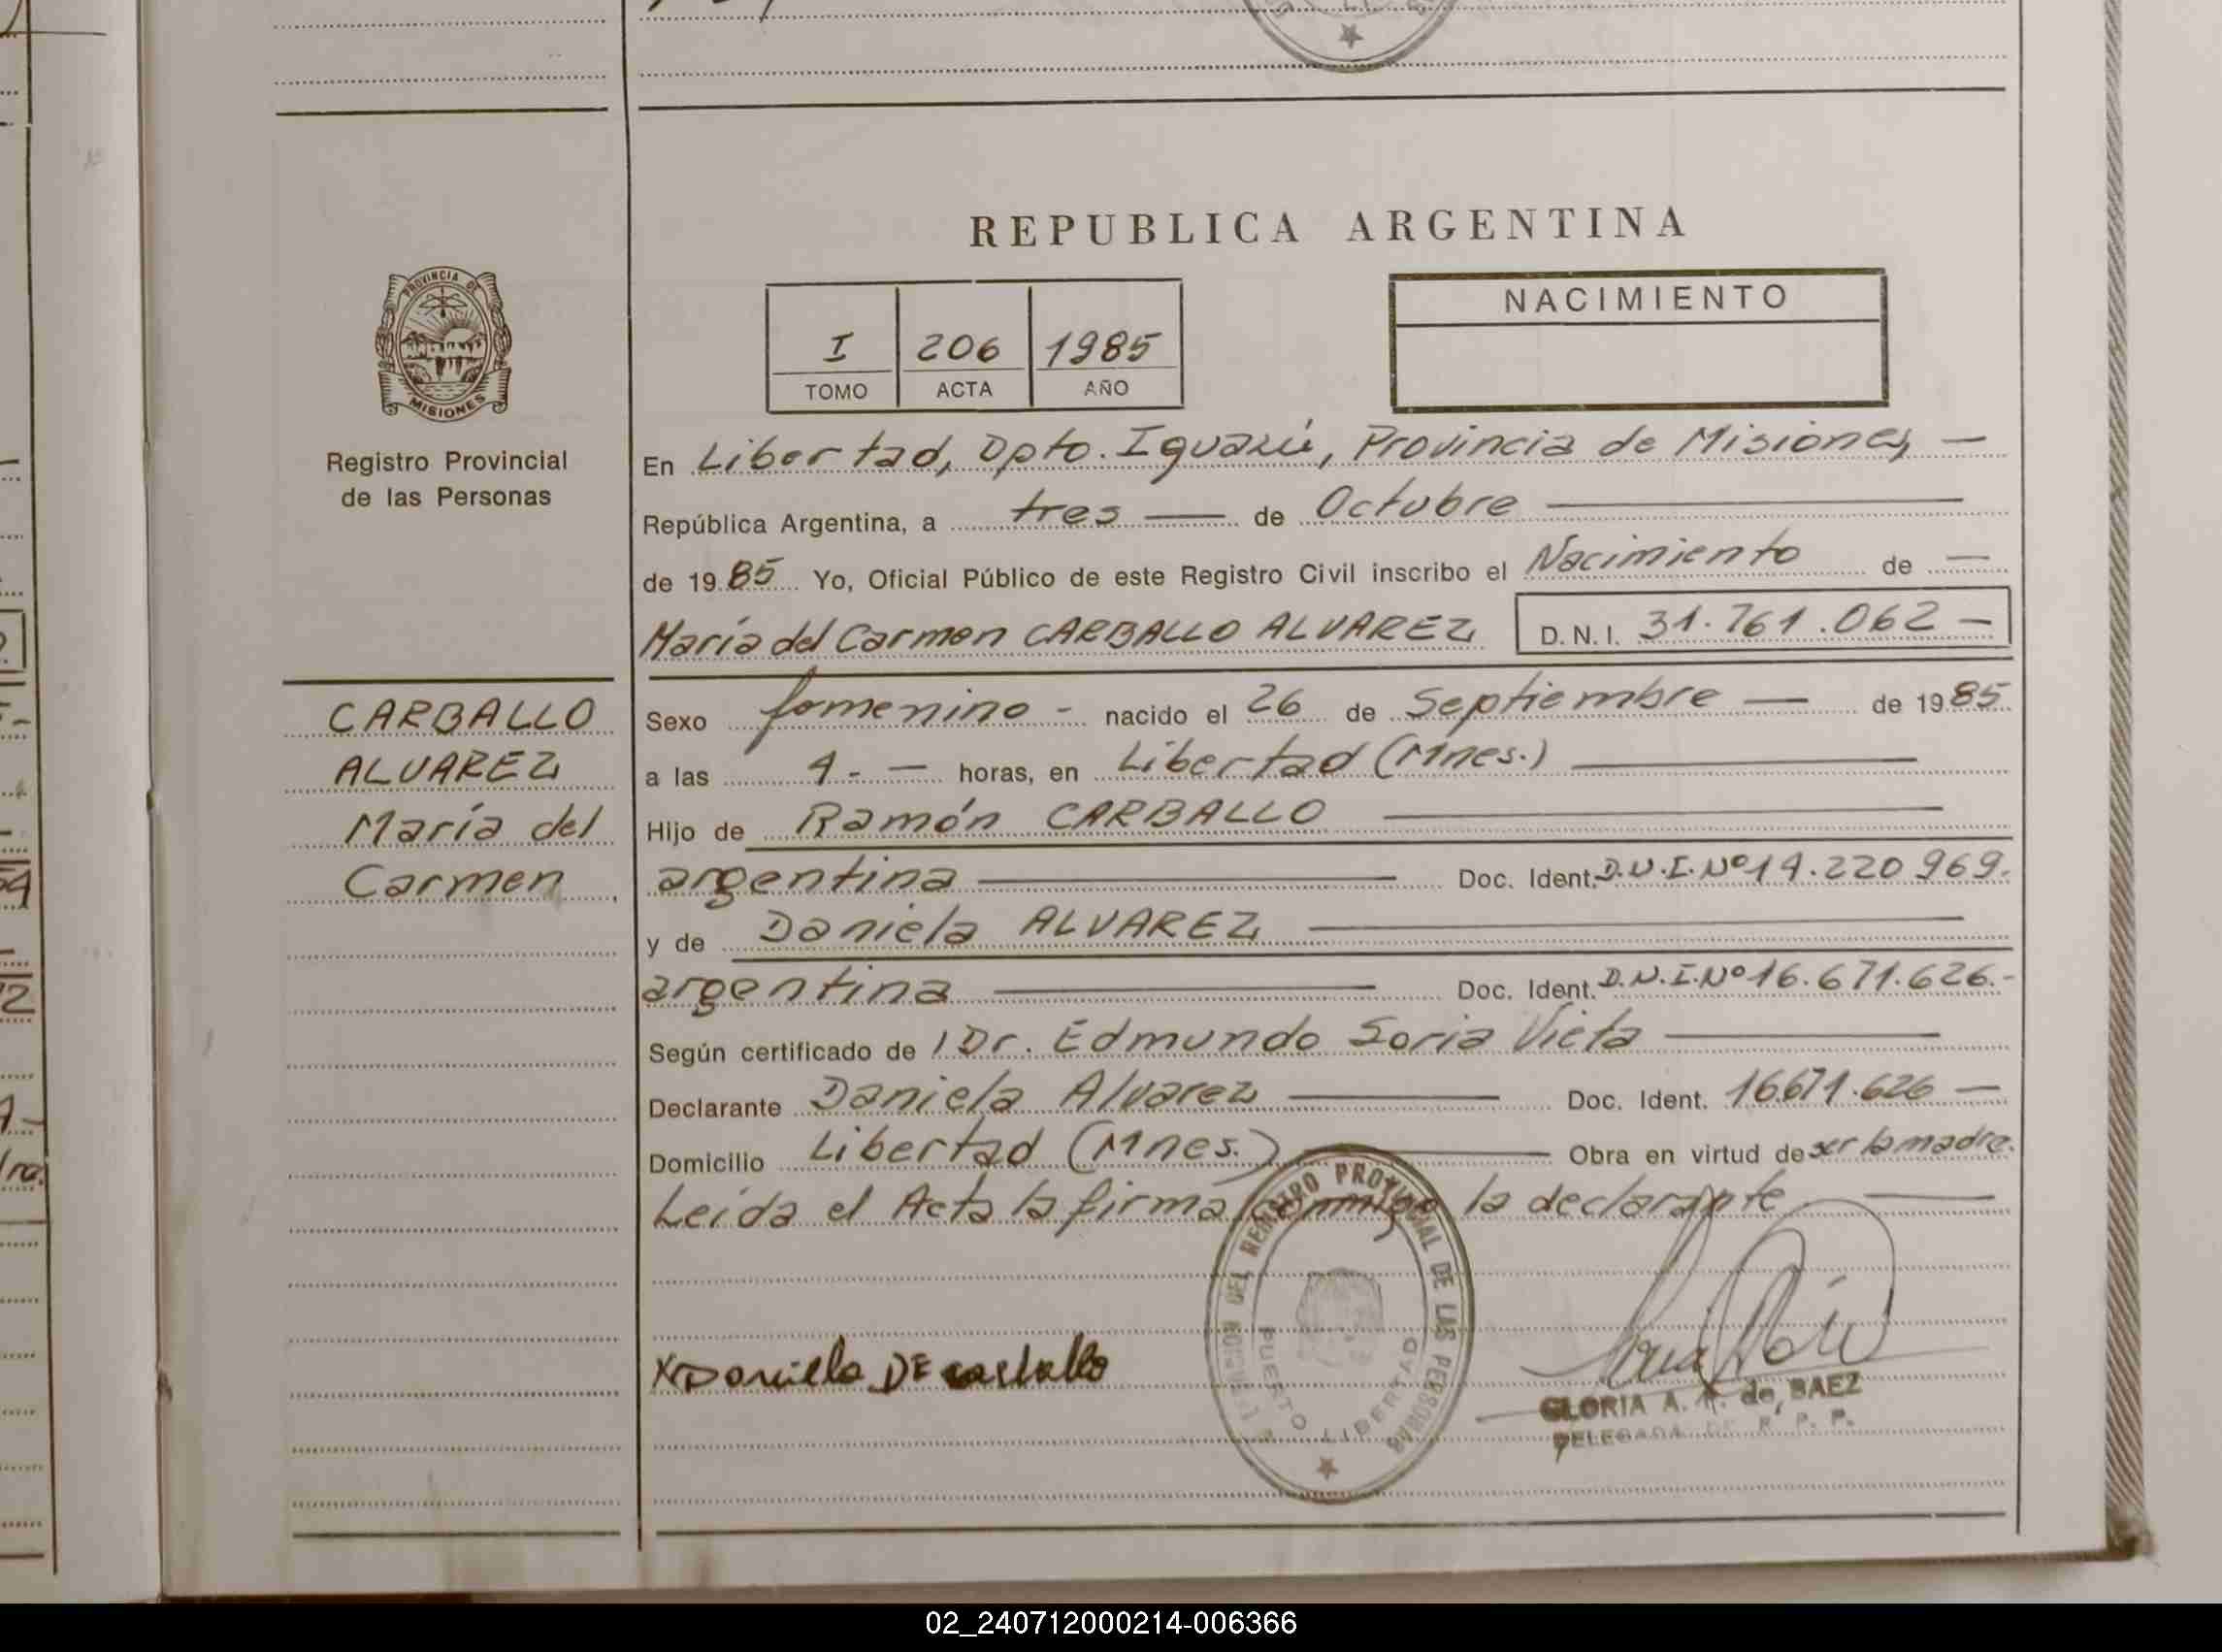 REPUBLICA ARGENTINA
PROVINCIA DE
MISIONES
Registro Provincial
de las Personas
I 206 1985
TOMO ACTA AÑO
NACIMIENTO
En Libertad, Dpto. Iguazú, Provincia de Misiones, —
República Argentina, a tres — de Octubre —
de 1985 Yo, Oficial Público de este Registro Civil inscribo el Nacimiento de —
María del Carmen CARBALLO ALVAREZ D.N.I. 31.761.062 —
CARBALLO
ALVAREZ
María del
Carmen
Sexo femenino - nacido el 26 de Septiembre — de 1985.
a las 4.- — horas, en Libertad (Mnes.) —
Hijo de Ramón CARBALLO —
argentina — Doc. Ident. D.N.I. Nº 14.220.969.
y de Daniela ALVAREZ —
argentina — Doc. Ident. D.N.I. Nº 16.671.626.-
Según certificado de / Dr. Edmundo Soria Vieta —
Declarante Daniela Alvarez — Doc. Ident. 16671.626 —
Domicilio Libertad (Mnes.) — Obra en virtud de ser la madre.
Leída el Acta la firma conmigo la declarante —
X Daniela DE carballo
DEL REGISTRO PROVINCIAL DE LAS PERSONAS
PUERTO LIBERTAD
GLORIA A. de BAEZ
DELEGADA DE R. P. P.
02_240712000214-006366